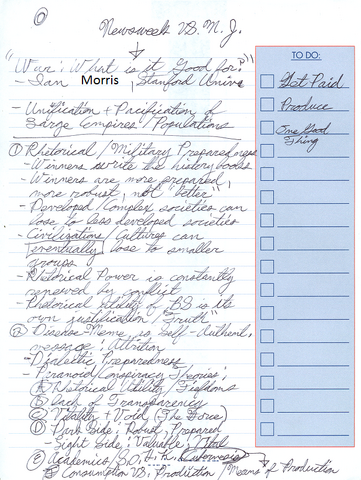 Newsweek VS. N. J.
"War: What is it Good for?"
- Ian Morris, Stanford Univ.
- Unification + Pacification of
Large Empires / Populations
① Rhetorical / Military Preparedness
- Winners write the history books
- Winners are more prepared,
more robust, not "better"
- Developed / Complex societies can
lose to less developed societies
- Civilizations / Cultures can
eventually lose to smaller
groups
- Rhetorical Power is constantly
renewed by conflict
- Rhetorical utility of BS is its
own justification "Truth"
② Disease-Meme is Self-Authent.
message; Attrition
- Dialectic Preparedness
- Paranoid Conspiracy Theories:
Ⓐ Rhetorical Utility / Fiefdoms
Ⓑ Lack of Transparency
Ⓒ Vitality + Void (The Force)
Ⓓ Dark Side: Robust, Prepared
- Light Side: Valuable,
Ⓔ Academics / B.O.
Consumption VS. Production / Means of Production
TO DO:
Get Paid
Produce
One Good
Thing